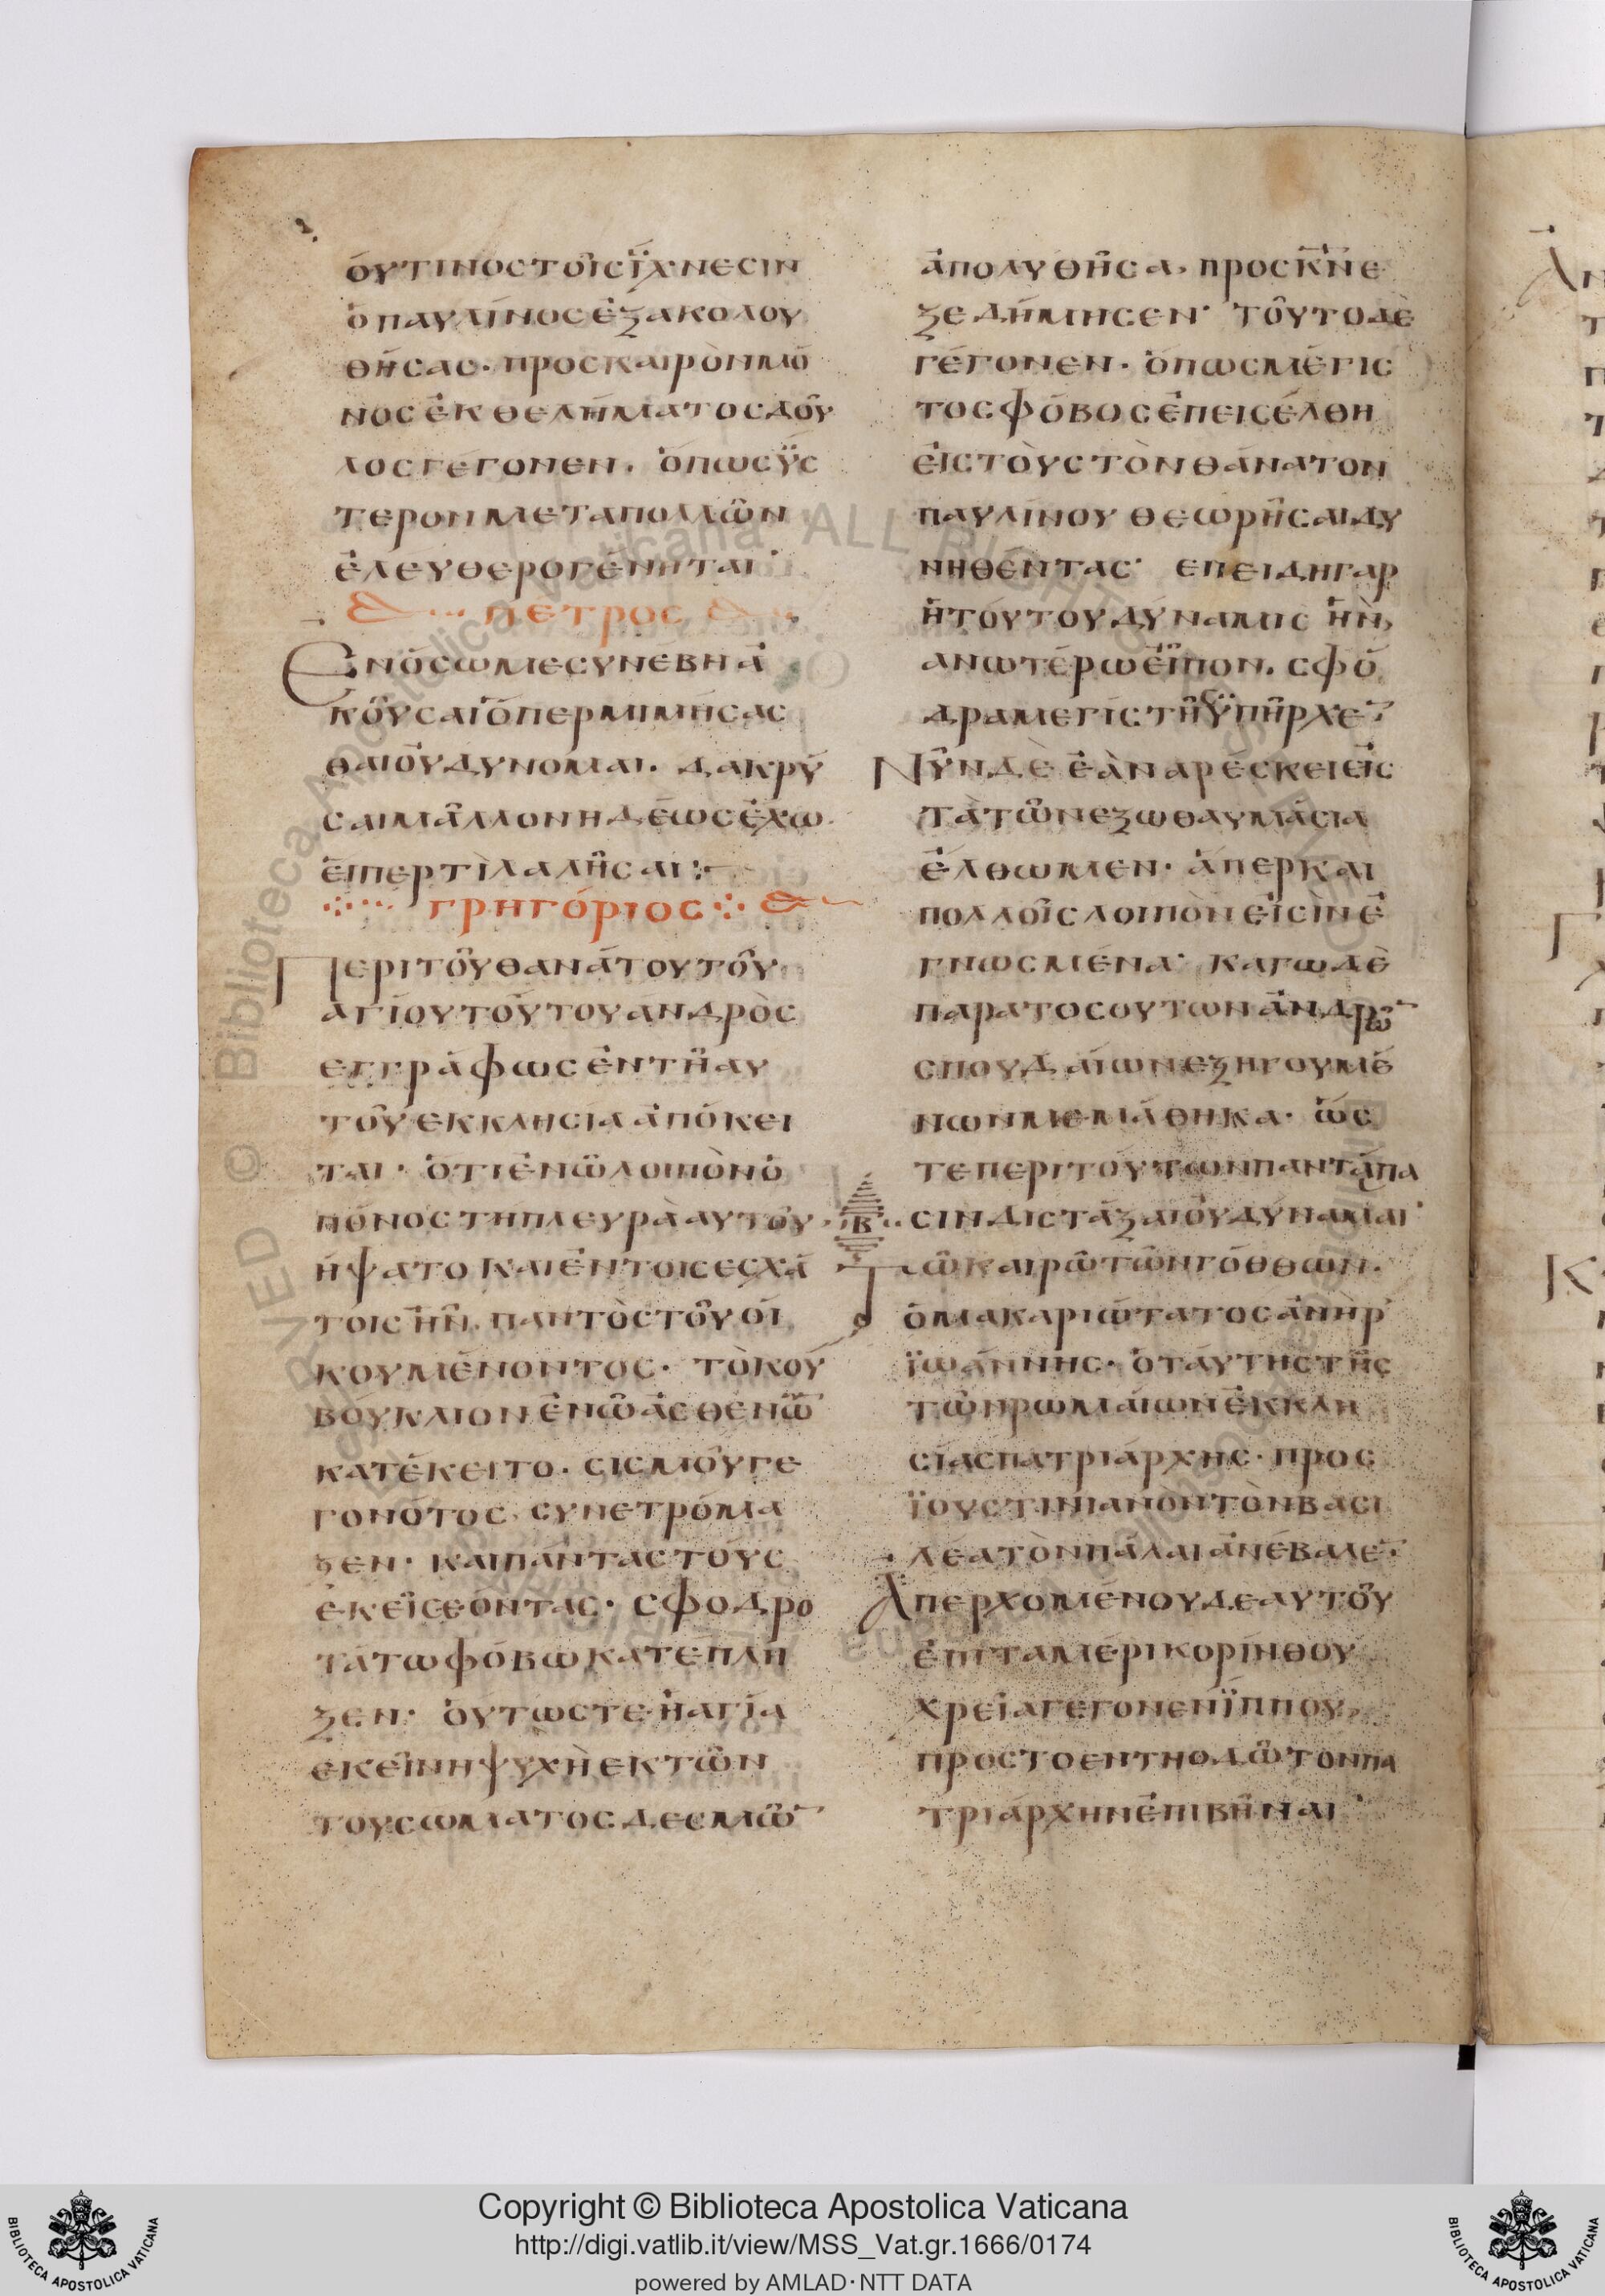 ὁυτινος τοῖς ἴχνεσιν
ὁ παυλίνος ἐξακολου
θήσας· προς καιρὸν μό
νος ἐκ θελήματος δοῦ
λος γέγονεν. ὅπως ὕς
τερον μετα πολλῶν
ἐλεύθερο γένηται·
πετρος
Ενόσω με συνεβη ἀ
κοῦσαι ὅπερ μιμήσας
θαι οὐ δυνομαι. δακρύ
σαι μᾶλλον ηδέως ἔχω
εἴπερ τὶ λαλῆσαι :
γρηγόριος
Περι τοῦ θανάτου τοῦ
αγίου τούτου ανδρὸς
εγγράφως ἐν τῆ αυ
τοῦ εκκλησία ἀπόκει
ται· ὅτι ἐν ὧ λοιπὸν ὁ
πόνος τη πλευρὰ αυτοῦ
ήψατο και ἐν τοις εσχά
τοις ἦν. παντὸς τοῦ οἴ
κου μένοντος· τὸ κου
βούκλιον ἐν ὧ ἀσθενῶ
κατέκειτο. σισμοῦ γε
γονότος συνετρόμα
ξεν· και πάντας τούς
ἐκεῖσε ὄντας· σφοδρο
τάτω φόβω κατεπλη
ξεν· ὅυτως τε ἡ αγία
εκείνη ψυχὴ εκ των
του σωματος δεσμῶ
ἀπολυθῆσα, προς κν̄ ε
ξεδήμησεν· τοῦτο δὲ
γέγονεν· ὅπως μέγις
τος φόβος ἐπεισέλθη
εἰς τοὺς τὸν θάνατον
παυλίνου θεωρῆσαι δυ
νηθέντας· επειδη γαρ
ἡ τούτου δύναμις ἣν,
ανωτέρω εἶπον. σφό
δρα μεγίστη ὑπῆρχε
Νῦν δὲ ἐὰν αρέσκει εἰς
τὰ τῶν εξω θαυμάσια
ἔλθωμεν· ἅπερ και
πολλοῖς λοιπὸν εἰσὶν ἐ
γνωσμένα· καγω δὲ
παρα τοσουτων ἀνδρῶ
σπουδαίων εξηγουμέ
νων μεμάθηκα· ὥσ
τε περι τούτων παντάπα
β
σιν διστάξαι οὐ δύναμαι·
Τω καιρῶ τῶν γόθθων.
ὁ μακαριώτατος ἀνὴρ
ϊωάννης· ὁ ταύτης τῆς
τῶν ρωμαίων ἐκκλη
σίας πατριάρχης· προς
ϊουστινιανὸν τὸν βασι
λέα τὸν πάλαι ἀνέβαλε
Απερχομένου δε αυτοῦ
ἐπι τα μέρι κορίνθου
χρεία γεγονεν ϊππου,
προς το εν τη οδῶ τον πα
τριάρχην ἐπιβῆναι·
Copyright © Biblioteca Apostolica Vaticana
http://digi.vatlib.it/view/MSS_Vat.gr.1666/0174
powered by AMLAD·NTT DATA
BIBLIOTECA APOSTOLICA VATICANA
BIBLIOTECA APOSTOLICA VATICANA